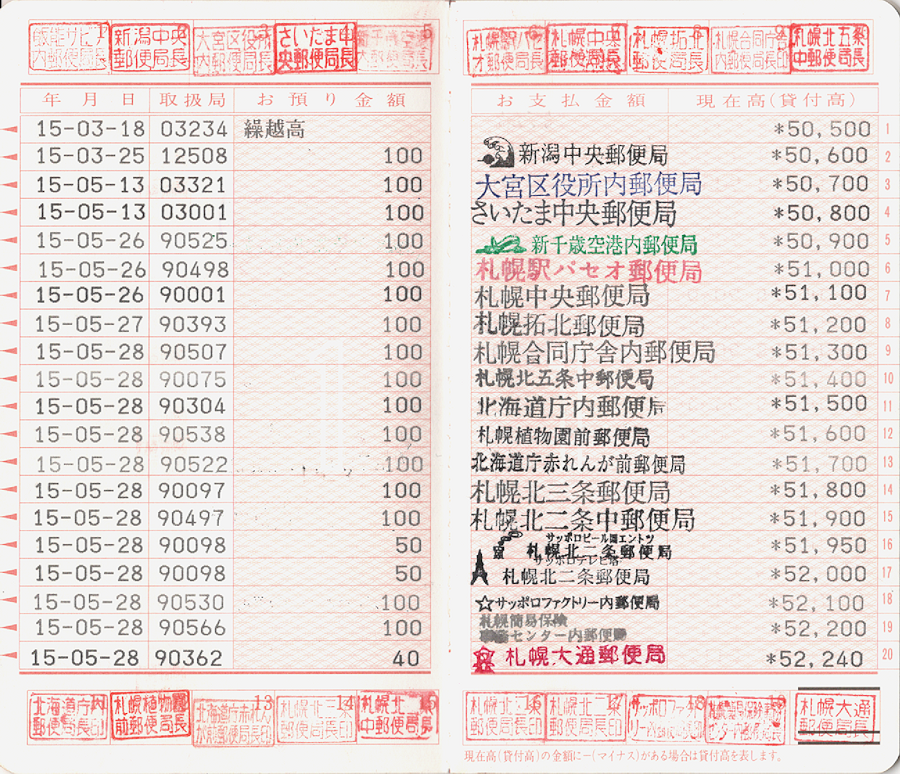 新潟中央郵便局長
さいたま中央郵便局長
札幌中央郵便局長
札幌拓北郵便局長
札幌北五条中郵便局長
年月日 取扱局 お預り金額 お支払金額 現在高(貸付高)
15-03-18 03234 繰越高 *50,500 1
15-03-25 12508 100 新潟中央郵便局 *50,600 2
15-05-13 03321 100 大宮区役所内郵便局 *50,700 3
15-05-13 03001 100 さいたま中央郵便局 *50,800 4
15-05-26 90525 100 新千歳空港内郵便局 *50,900 5
15-05-26 90498 100 札幌駅パセオ郵便局 *51,000 6
15-05-26 90001 100 札幌中央郵便局 *51,100 7
15-05-27 90393 100 札幌拓北郵便局 *51,200 8
15-05-28 90507 100 札幌合同庁舎内郵便局 *51,300 9
15-05-28 90075 100 札幌北五条中郵便局 *51,400 10
15-05-28 90304 100 北海道庁内郵便局 *51,500 11
15-05-28 90538 100 札幌植物園前郵便局 *51,600 12
15-05-28 90522 100 北海道庁赤れんが前郵便局 *51,700 13
15-05-28 90097 100 札幌北三条郵便局 *51,800 14
15-05-28 90497 100 札幌北二条中郵便局 *51,900 15
サッポロビール園エントツ
15-05-28 90098 50 札幌北二条郵便局 *51,950 16
サッポロテレビ塔
15-05-28 90098 50 札幌北二条郵便局 *52,000 17
15-05-28 90530 100 サッポロファクトリー内郵便局 *52,100 18
札幌簡易保険
15-05-28 90566 100 センター内郵便局 *52,200 19
15-05-28 90362 40 札幌大通郵便局 *52,240 20
北海道庁内郵便局長印
札幌植物園前郵便局長
13
札幌北三条郵便局長印 14
札幌北二条中郵便局長
札幌北二条郵便局長印 16
札幌北二条郵便局長印 17
札幌大通郵便局長
現在高(貸付高)の金額に-(マイナス)がある場合は貸付高を表します。